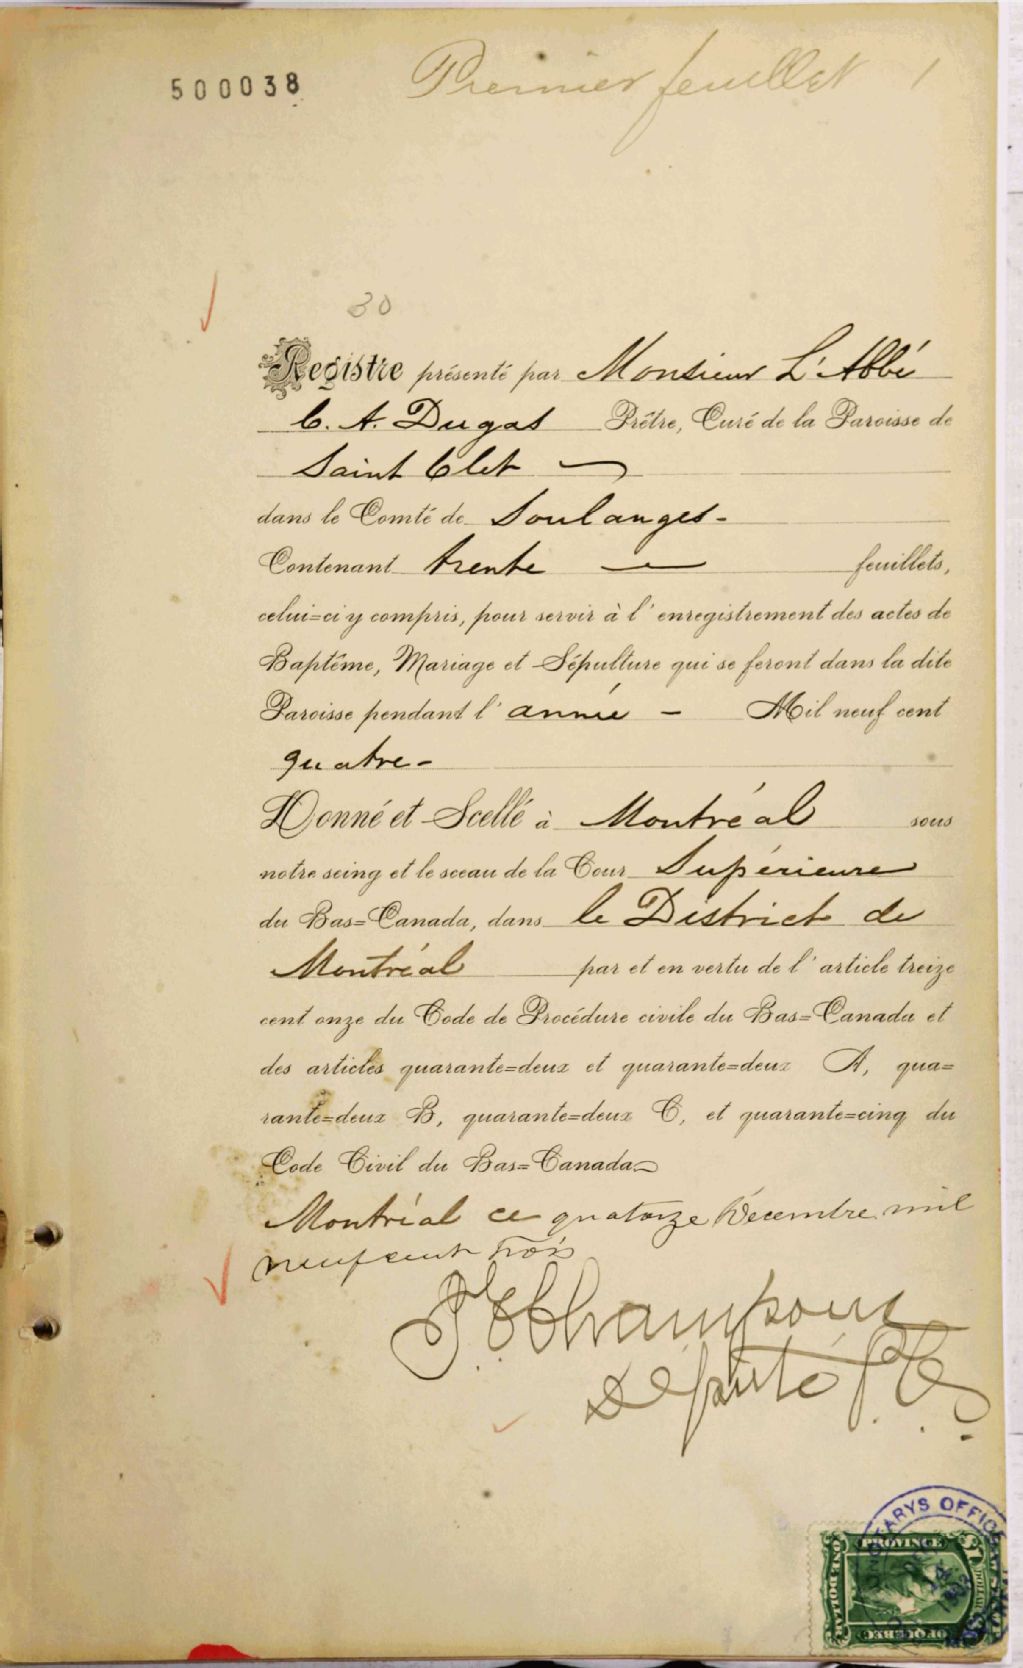 500038
Premier feuillet 1
30
Registre présenté par Monsieur L'Abbé
C. A. Dugas Prêtre, Curé de la Paroisse de
Saint Clet
dans le Comté de Soulanges-
Contenant trente — feuillets,
celui=ci y compris, pour servir à l'enregistrement des actes de
Baptême, Mariage et Sépulture qui se feront dans la dite
Paroisse pendant l'année - Mil neuf cent
quatre-
Donné et Scellé à Montréal sous
notre seing et le sceau de la Cour Supérieure
du Bas=Canada, dans le District de
Montréal par et en vertu de l'article treize
cent onze du Code de Procédure civile du Bas=Canada et
des articles quarante=deux et quarante=deux A, qua=
rante=deux B, quarante=deux C, et quarante=cinq du
Code Civil du Bas=Canada
Montréal ce quatorze Décembre mil
neuf cent trois
Champoux
Député
OFFICE
PROVINCE
ONE DOLLAR
QUEBEC